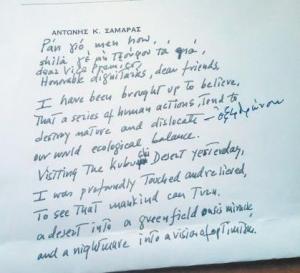 ΑΝΤΩΝΗΣ Κ. ΣΑΜΑΡΑΣ
men how,
dear Vice Premier,
Honorable dignitaries, dear friends,
I have been brought up to believe,
That a series of human actions, tend to
destroy nature and dislocate
our world ecological balance.
Visiting the Kubuqi Desert yesterday,
I was profundly Touched and relieved,
To see That mankind can Turn
a desert into a greenfield oasis miracle,
and a nightmare into a vision of optimism.